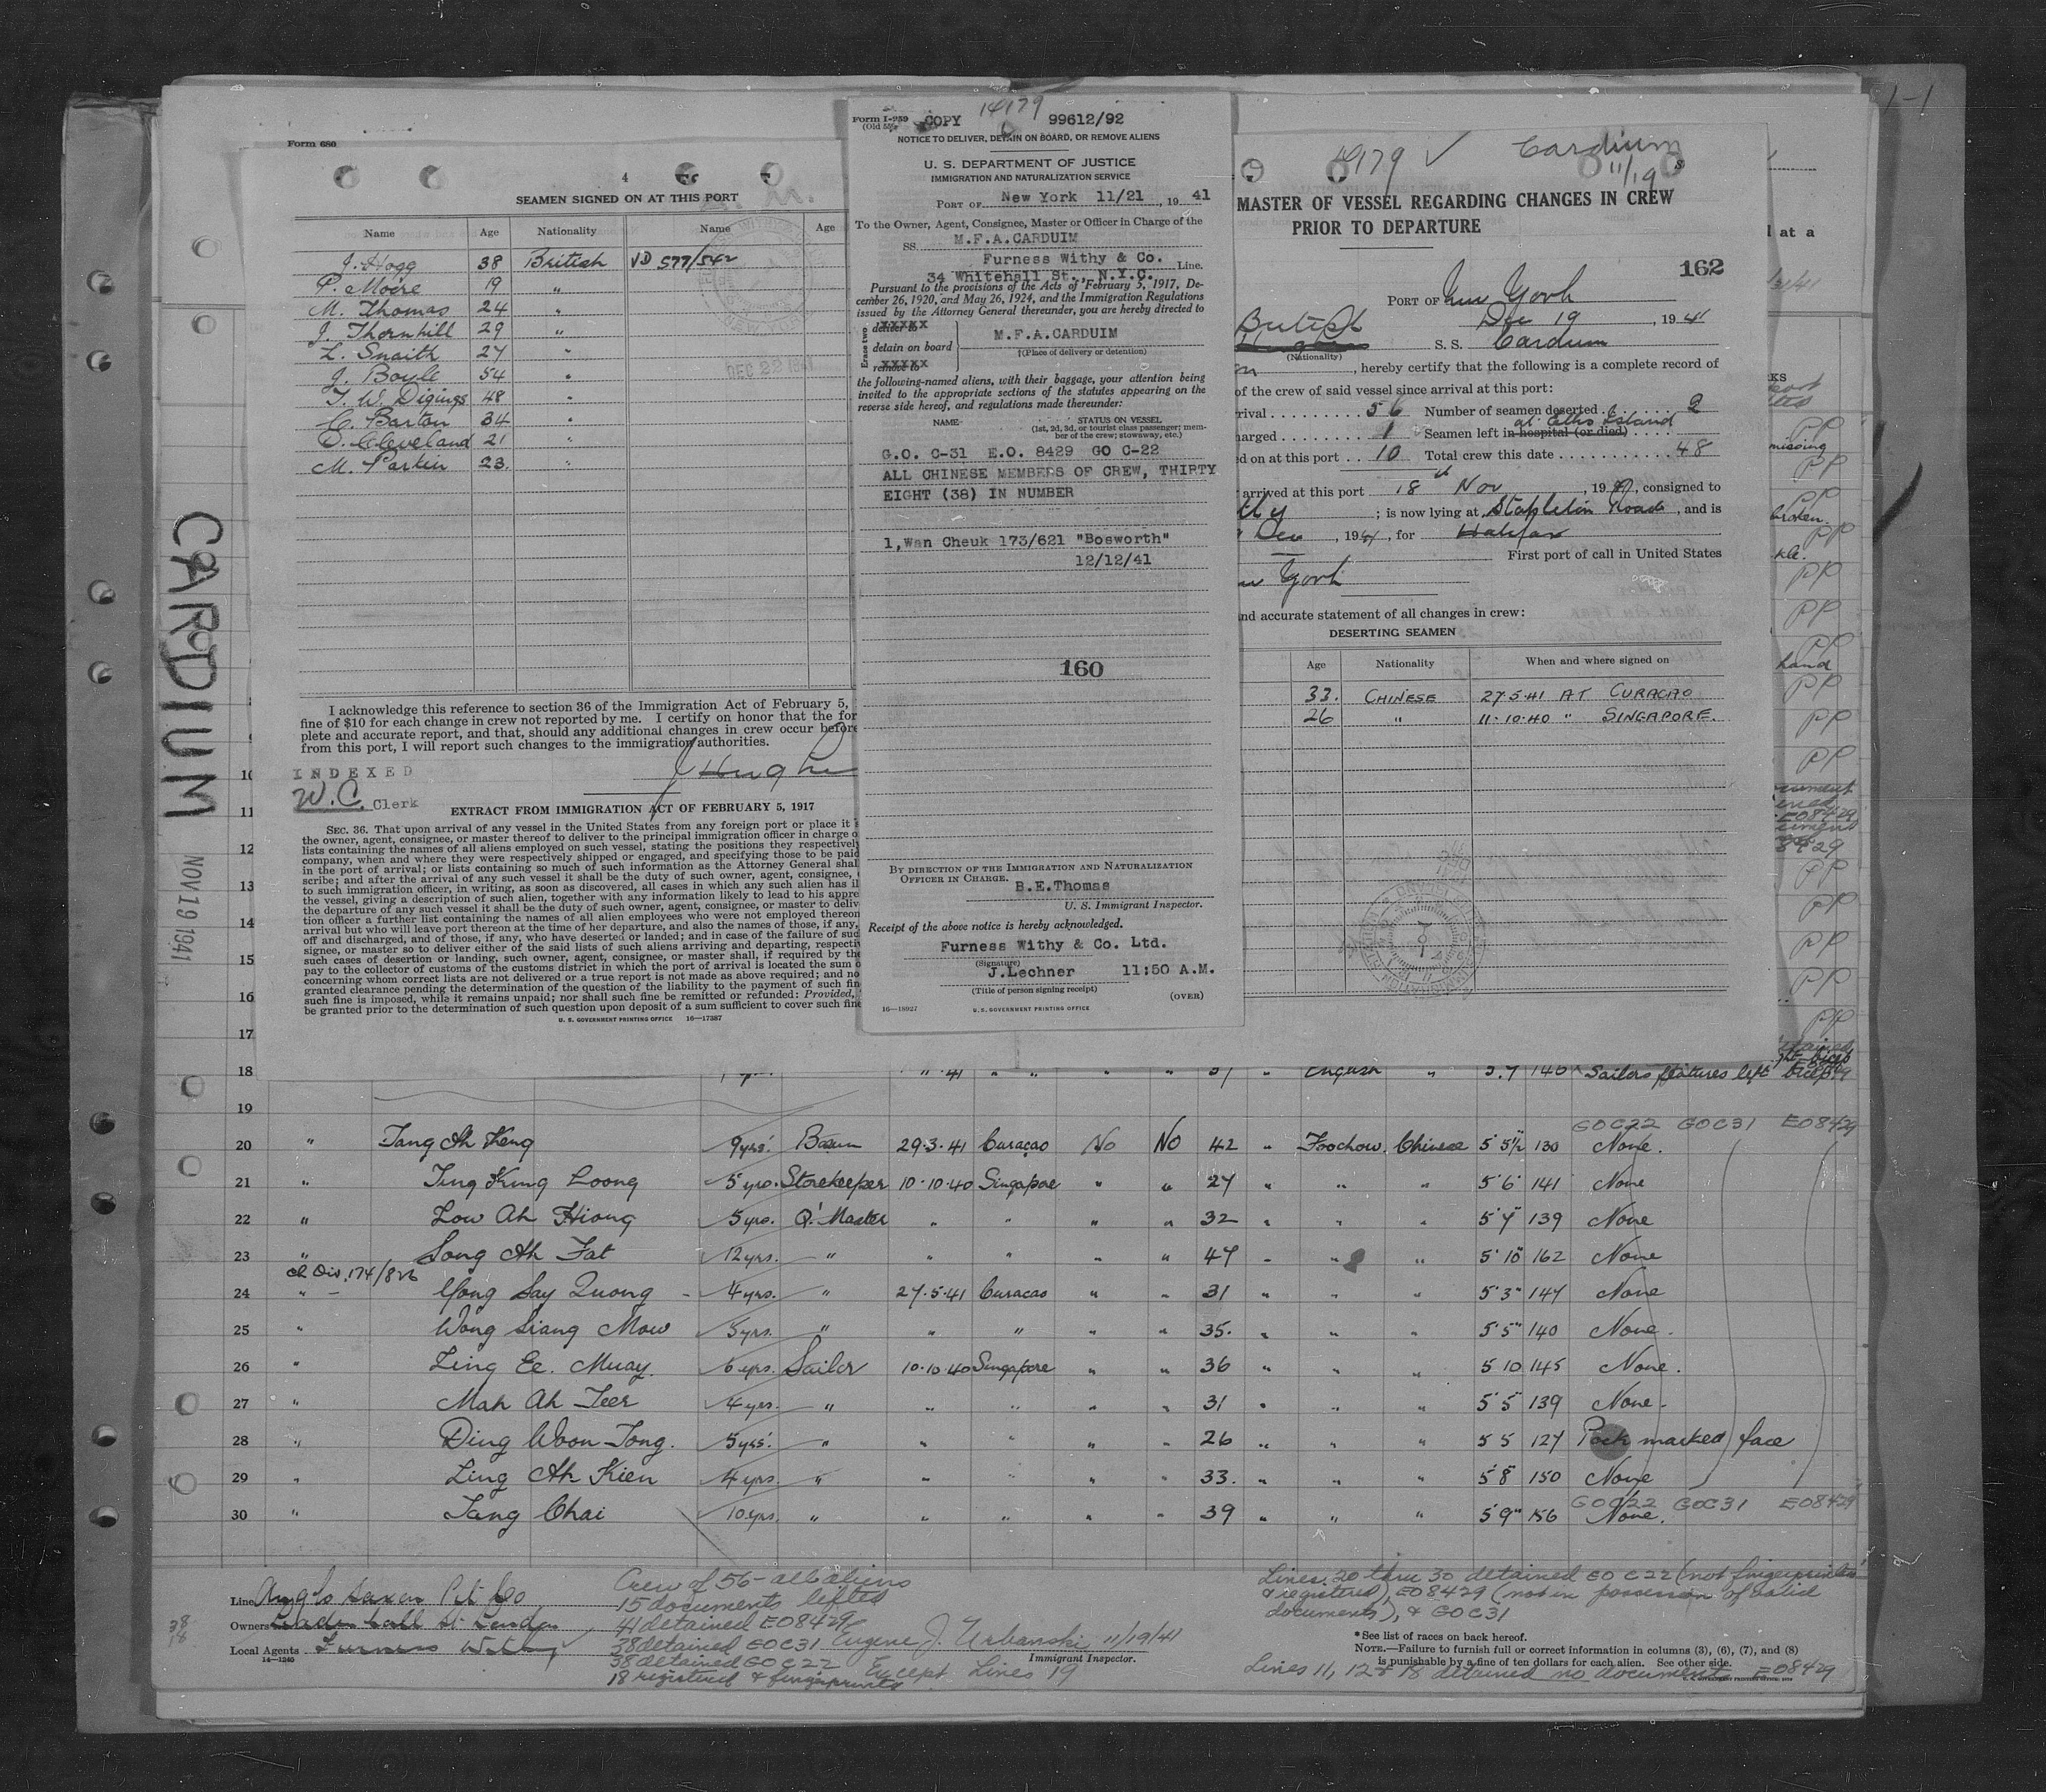 1-1
Form 680
4
SEAMEN SIGNED ON AT THIS PORT
Name Age Nationality Name Age
J. Hogg 38 British VD 577/542
P. Moore 19 "
M. Thomas 24 "
J. Thornhill 29 "
L. Snaith 27 "
J. Boyle 54 "
T. W. Digings 48 "
C. Barton 34 "
D. Cleveland 21 "
M. Parkin 23. "
DEC 22 1941
I acknowledge this reference to section 36 of the Immigration Act of February 5,
fine of $10 for each change in crew not reported by me. I certify on honor that the for
plete and accurate report, and that, should any additional changes in crew occur before
from this port, I will report such changes to the immigration authorities.
INDEXED
W.C. Clerk
EXTRACT FROM IMMIGRATION ACT OF FEBRUARY 5, 1917
SEC. 36. That upon arrival of any vessel in the United States from any foreign port or place it
the owner, agent, consignee, or master thereof to deliver to the principal immigration officer in charge o
lists containing the names of all aliens employed on such vessel, stating the positions they respectively
company, when and where they were respectively shipped or engaged, and specifying those to be paid
in the port of arrival; or lists containing so much of such information as the Attorney General shal
scribe; and after the arrival of any such vessel it shall be the duty of such owner, agent, consignee,
to such immigration officer, in writing, as soon as discovered, all cases in which any such alien has il
the vessel, giving a description of such alien, together with any information likely to lead to his appre
the departure of any such vessel it shall be the duty of such owner, agent, consignee, or master to deliv
tion officer a further list containing the names of all alien employees who were not employed thereon
arrival but who will leave port thereon at the time of her departure, and also the names of those, if any,
off and discharged, and of those, if any, who have deserted or landed; and in case of the failure of suc
signee, or master so to deliver either of the said lists of such aliens arriving and departing, respectiv
such cases of desertion or landing, such owner, agent, consignee, or master shall, if required by the
pay to the collector of customs of the customs district in which the port of arrival is located the sum o
concerning whom correct lists are not delivered or a true report is not made as above required; and no
granted clearance pending the determination of the question of the liability to the payment of such fin
such fine is imposed, while it remains unpaid; nor shall such fine be remitted or refunded: Provided,
be granted prior to the determination of such question upon deposit of a sum sufficient to cover such fine
U. S. GOVERNMENT PRINTING OFFICE 16—17387
CARDIUM
NOV 19 1941
14179
Form I-259 COPY 99612/92
NOTICE TO DELIVER, DETAIN ON BOARD, OR REMOVE ALIENS
U. S. DEPARTMENT OF JUSTICE
IMMIGRATION AND NATURALIZATION SERVICE
PORT OF New York 11/21, 19 41
To the Owner, Agent, Consignee, Master or Officer in Charge of the
SS. M.F.A.CARDUIM
Furness Withy & Co. Line.
34 Whitehall St., N.Y.C.
Pursuant to the provisions of the Acts of February 5, 1917, De-
cember 26, 1920, and May 26, 1924, and the Immigration Regulations
issued by the Attorney General thereunder, you are hereby directed to
Erase two
deliver to xxxxx
detain on board M.F.A.CARDUIM
†(Place of delivery or detention)
remove to xxxxx
the following-named aliens, with their baggage, your attention being
invited to the appropriate sections of the statutes appearing on the
reverse side hereof, and regulations made thereunder:
NAME STATUS ON VESSEL
(1st, 2d, 3d, or tourist class passenger; mem-
ber of the crew; stowaway, etc.)
G.O. C-31 E.O. 8429 GO C-22
ALL CHINESE MEMBERS OF CREW, THIRTY
EIGHT (38) IN NUMBER
1,Wan Cheuk 173/621 "Bosworth"
12/12/41
160
BY DIRECTION OF THE IMMIGRATION AND NATURALIZATION
OFFICER IN CHARGE.
B.E.Thomas
U. S. Immigrant Inspector.
Receipt of the above notice is hereby acknowledged.
Furness Withy & Co. Ltd.
(Signature)
J.Lechner 11:50 A.M.
(Title of person signing receipt)
(OVER)
16—18927 U. S. GOVERNMENT PRINTING OFFICE
14179 ✓ Cardium
11/19
MASTER OF VESSEL REGARDING CHANGES IN CREW
PRIOR TO DEPARTURE
162
PORT OF New York
Dec 19, 1941
British S. S. Cardium
(Nationality)
, hereby certify that the following is a complete record of
of the crew of said vessel since arrival at this port:
rival 56 Number of seamen deserted 2
at Ellis Island
harged 1 Seamen left in hospital (or died)
ed on at this port 10 Total crew this date 48
arrived at this port 18th Nov, 19 , consigned to
; is now lying at Stapleton Roads, and is
Dec, 1941, for Halifax
First port of call in United States
York
nd accurate statement of all changes in crew:
DESERTING SEAMEN
Age Nationality When and where signed on
33. CHINESE 27·5·41 AT CURACAO
26 " 11·10·40 " SINGAPORE.
d at a
missing
broken.
hand
PP
10
11
12
13
14
15
16
17
18 " ·41 " " " " 37 " English " 5.7 140 Sailors features left bicep
19
GOC22 GOC31 EO8429
20 " Tang Ah Keng 9yrs. Bosun 29·3·41 Curacao No No 42 " Foochow Chinese 5'5½ 130 None.
21 " Ting Kung Loong 5yrs. Storekeeper 10·10·40 Singapore " " 27 " " " 5'6" 141 None
22 " Low Ah Hiong 5yrs. Q'Master " " " " 32 " " " 5'7" 139 None
23 " Song Ah Fat 12yrs. " " " " " 47 " " " 5'10" 162 None
174/826
24 " Yong Say Quong 4yrs. " 27·5·41 Curacao " " 31 " " " 5'3" 147 None
25 " Wong Siang Mow 5yrs. " " " " " 35. " " " 5'5" 140 None.
26 " Ling Ee. Muay. 6yrs. Sailor 10·10·40 Singapore " " 36 " " " 5 10 145 None.
27 " Mah Ah Teer 4yrs. " " " " " 31 " " " 5'5 139 None.
28 " Ding Woon Tong. 5yrs. " " " " " 26 " " " 5 5 127 Pock marked face
29 " Ling Ah Kien 4yrs. " " " " " 33. " " " 5'8" 150 None
GOC22 GOC31 EO8429
30 " Tang Chai 10yrs. " " " " " 39 " " " 5'9" 156 None.
Line Anglo Saxon Pet Co
Owners Leadenhall St London
Local Agents Furness Withy
16—1240
38
18
Crew of 56 - all aliens
15 documents lifted
41 detained EO8429
38 detained GOC31 Eugene J. Urbanski 11/19/41
Immigrant Inspector.
38 detained GOC22 Except Lines 19
18 registered & fingerprinted
Lines 20 thru 30 detained GO C22 (not fingerprinted
& registered), EO8429 (not in possession of valid
documents), & GOC31
*See list of races on back hereof.
NOTE.—Failure to furnish full or correct information in columns (3), (6), (7), and (8)
is punishable by a fine of ten dollars for each alien. See other side.
Lines 11, 12 & 18 detained no document EO8429